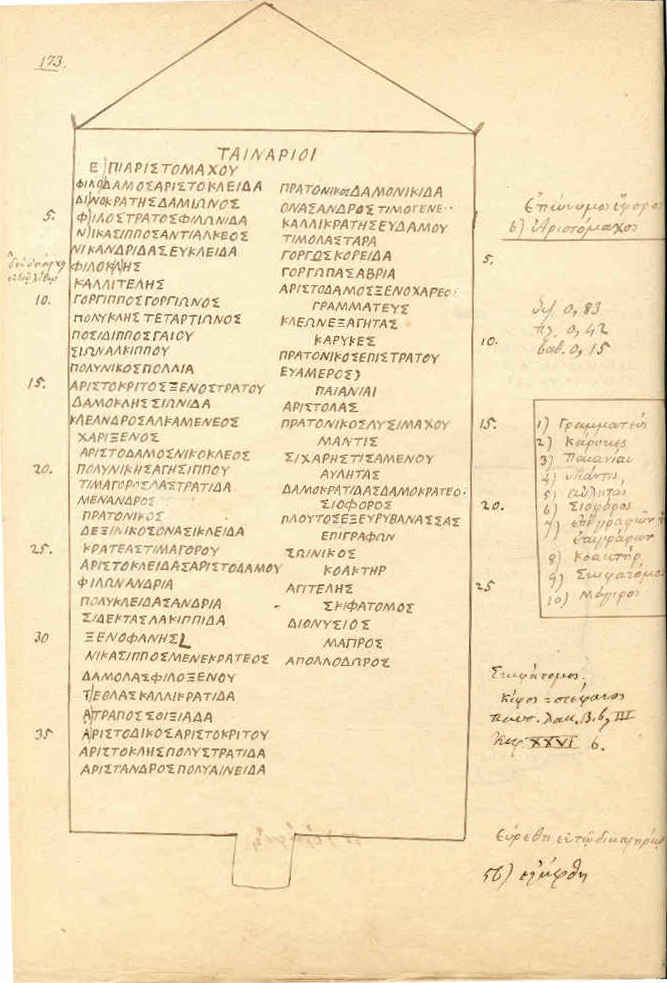 173.
ΤΑΙΝΑΡΙΟΙ
ΕΠΙΑΡΙΣΤΟΜΑΧΟΥ
ΦΙΛΟΔΑΜΟΣΑΡΙΣΤΟΚΛΕΙΔΑ
ΔΙΝΟΚΡΑΤΗΣΔΑΜΙΩΝΟΣ
5. ΦΙΛΟΣΤΡΑΤΟΣΦΙΛΩΝΙΔΑ
ΝΙΚΑΣΙΠΠΟΣΑΝΤΙΑΛΚΕΟΣ
ΝΙΚΑΝΔΡΙΔΑΣΕΥΚΛΕΙΔΑ
ΦΙΛΟΚΛΗΣ
ΚΑΛΛΙΤΕΛΗΣ
10. ΓΟΡΓΙΠΠΟΣΓΟΡΓΙΩΝΟΣ
ΠΟΛΥΚΛΗΣΤΕΤΑΡΤΙΩΝΟΣ
ΠΟΣΙΔΙΠΠΟΣΓΑΙΟΥ
ΣΙΩΝΑΛΚΙΠΠΟΥ
ΠΟΛΥΝΙΚΟΣΠΟΛΛΙΑ
15. ΑΡΙΣΤΟΚΡΙΤΟΣΞΕΝΟΣΤΡΑΤΟΥ
ΔΑΜΟΚΛΗΣΣΙΩΝΙΔΑ
ΚΛΕΑΝΔΡΟΣΑΛΚΑΜΕΝΕΟΣ
ΧΑΡΙΞΕΝΟΣ
ΑΡΙΣΤΟΔΑΜΟΣΝΙΚΟΚΛΕΟΣ
20. ΠΟΛΥΝΙΚΗΣΑΓΗΣΙΠΠΟΥ
ΤΙΜΑΓΟΡΟΣΛΑΣΤΡΑΤΙΔΑ
ΜΕΝΑΝΔΡΟΣ
ΠΡΑΤΟΝΙΚΟΣ
ΔΕΞΙΝΙΚΟΣΟΝΑΣΙΚΛΕΙΔΑ
25. ΚΡΑΤΕΑΣΤΙΜΑΓΟΡΟΥ
ΑΡΙΣΤΟΚΛΕΙΔΑΣΑΡΙΣΤΟΔΑΜΟΥ
ΦΙΛΩΝΑΝΔΡΙΑ
ΠΟΛΥΚΛΕΙΔΑΣΑΝΔΡΙΑ
ΣΙΔΕΚΤΑΣΛΑΚΙΠΠΙΔΑ
30 ΞΕΝΟΦΑΝΗΣ
ΝΙΚΑΣΙΠΠΟΣΜΕΝΕΚΡΑΤΕΟΣ
ΔΑΜΟΛΑΣΦΙΛΟΞΕΝΟΥ
ΤΕΟΛΑΣΚΑΛΛΙΚΡΑΤΙΔΑ
ΑΤΡΑΠΟΣΣΟΙΞΙΑΔΑ
35 ΑΡΙΣΤΟΔΙΚΟΣΑΡΙΣΤΟΚΡΙΤΟΥ
ΑΡΙΣΤΟΚΛΗΣΠΟΛΥΣΤΡΑΤΙΔΑ
ΑΡΙΣΤΑΝΔΡΟΣΠΟΛΥΑΙΝΕΙΔΑ
ΠΡΑΤΟΝΙΚΟΣΔΑΜΟΝΙΚΙΔΑ
ΟΝΑΣΑΝΔΡΟΣΤΙΜΟΓΕΝΕ··
ΚΑΛΛΙΚΡΑΤΗΣΕΥΔΑΜΟΥ
ΤΙΜΟΛΑΣΤΑΡΑ
ΓΟΡΓΩΣΚΟΡΕΙΔΑ 5.
ΓΟΡΓΩΠΑΣΑΒΡΙΑ
ΑΡΙΣΤΟΔΑΜΟΣΞΕΝΟΧΑΡΕΟ·
ΓΡΑΜΜΑΤΕΥΣ
ΚΛΕΩΝΕΞΑΓΗΤΑΣ
ΚΑΡΥΚΕΣ 10.
ΠΡΑΤΟΝΙΚΟΣΕΠΙΣΤΡΑΤΟΥ
ΕΥΑΜΕΡΟΣ)
ΠΑΙΑΝΙΑΙ
ΑΡΙΣΤΟΛΑΣ
ΠΡΑΤΟΝΙΚΟΣΛΥΣΙΜΑΧΟΥ 15.
ΜΑΝΤΙΣ
ΣΙΧΑΡΗΣΤΙΣΑΜΕΝΟΥ
ΑΥΛΗΤΑΣ
ΔΑΜΟΚΡΑΤΙΔΑΣΔΑΜΟΚΡΑΤΕΟ·
ΣΙΟΦΟΡΟΣ 20.
ΠΛΟΥΤΟΣΕΞΕΥΡΥΒΑΝΑΣΣΑΣ
ΕΠΙΓΡΑΦΩΝ
ΣΩΝΙΚΟΣ
ΚΟΑΚΤΗΡ
ΑΓΙΤΕΛΗΣ 25
ΣΚΙΦΑΤΟΜΟΣ
ΔΙΟΝΥΣΙΟΣ
ΜΑΓΙΡΟΣ
ΑΠΟΛΛΟΔΩΡΟΣ
Ἐπώνυμοι ἔφοροι
6) Ἀριστόμαχος
ὑψ. 0,83
πλ. 0,42
βαθ. 0,15
1) Γραμματεύς
2) Κάρυκες
3) Παιανίαι
4) μάντις
5) αὐλητάς
6) Σιοφόρος
7) ἐπιγραφών
8) Κοακτήρ
9) Σκιφατόμος
10) Μάγιρος
Σκιφάτομος
XXVI 6.
56) ἐλήφθη